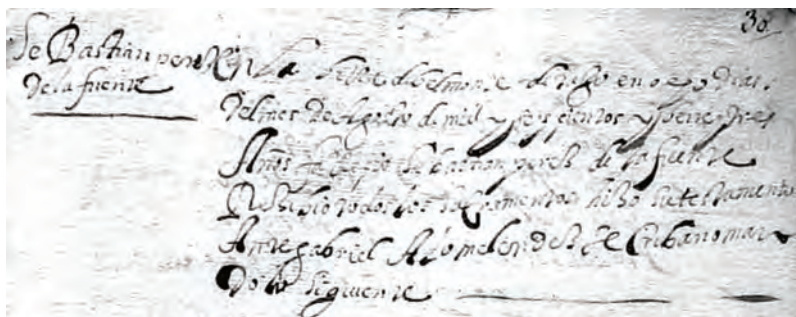 30
SeBastian perez
Delafuente
En La Villa del monte de hijo en ocho Dias
Del mes De Agosto de mil y seis cientos y
Años fallecio sebastian perez de la fuente
Resibio todos los sacramentos hizo su testamento
Ante gabriel melendez Escribano man
Do lo siguiente